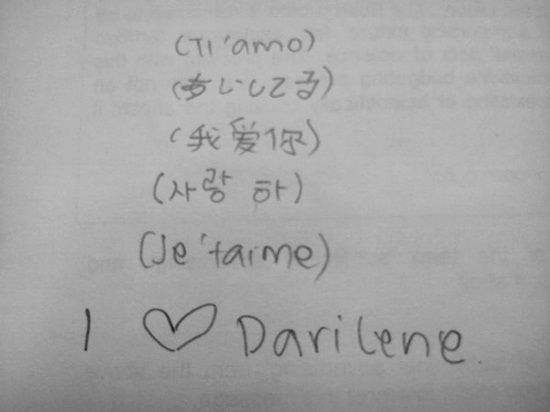 (Ti'amo)
(あいしてる)
(我爱你)
(사랑 하)
(Je'taime)
I ♡ Darilene.